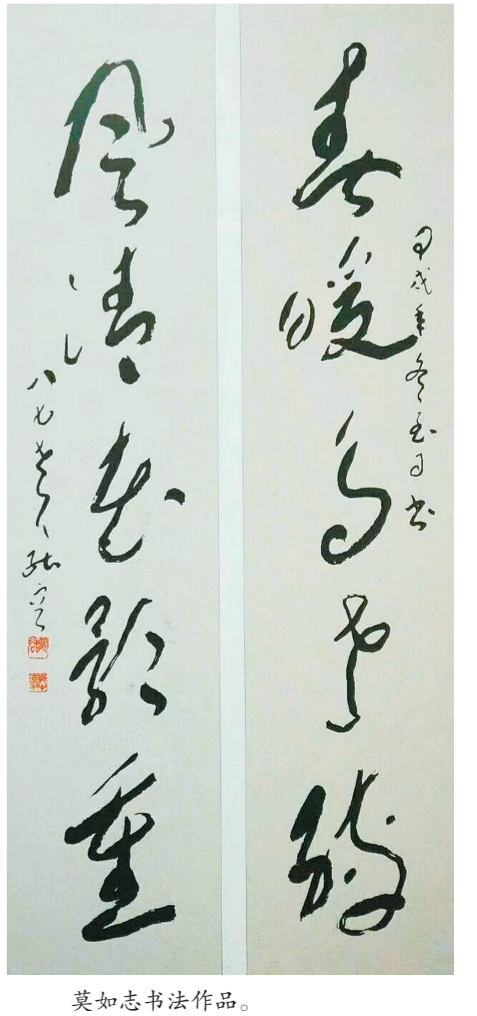 春暖鸟声
甲戌年冬至日书
风清花影重
八七老人
莫如志书法作品。